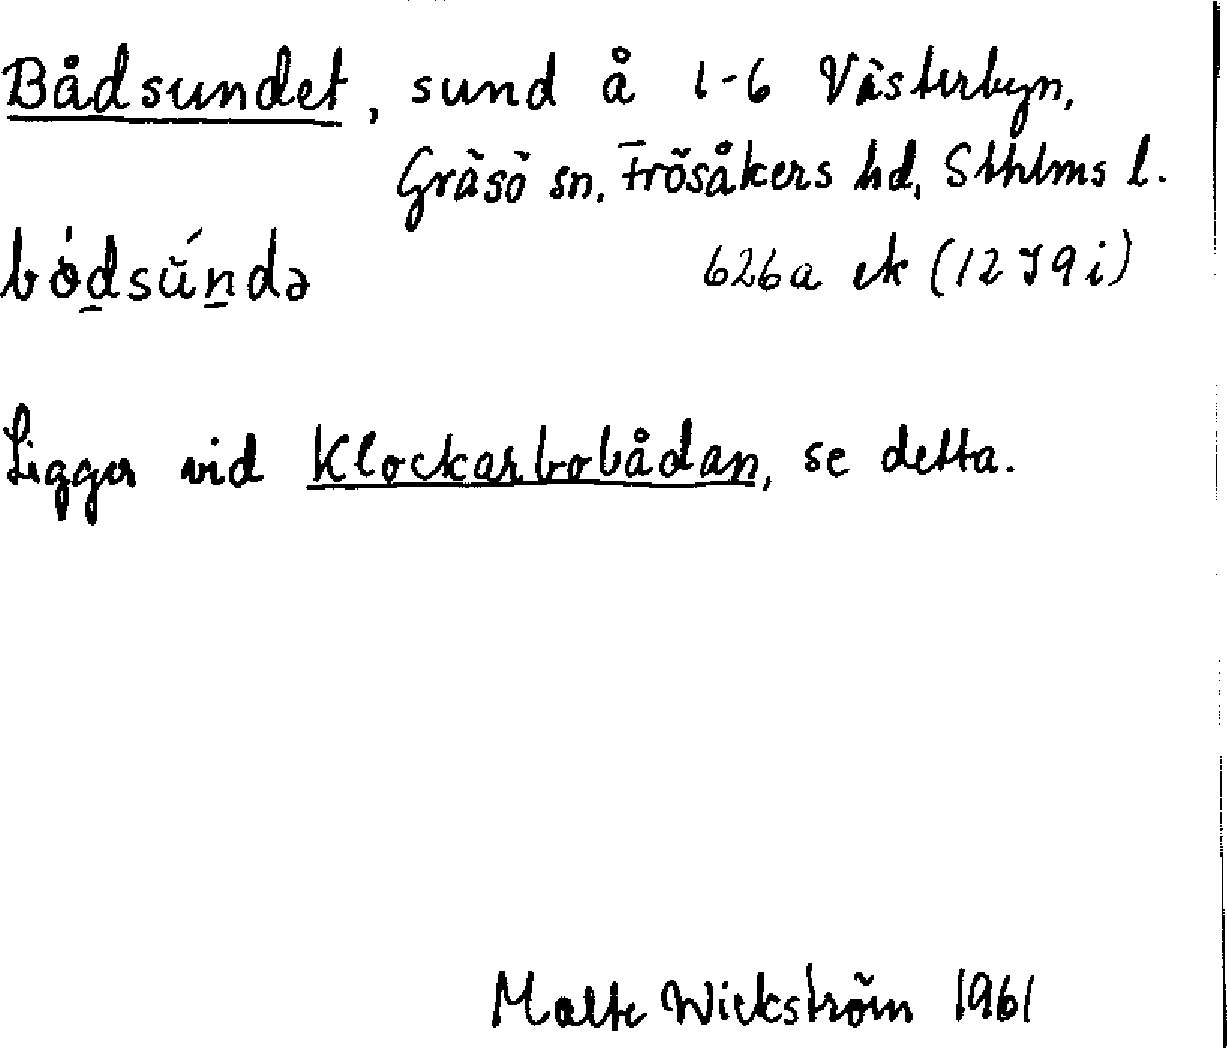 Bådsundet, sund å 1-6 Västerbyn,
Gräsö sn. Frösåkers hd, Sthlms l.
bó̱dsŭ́ṉdə 626a ek (12 I 9 i)
Ligger vid Klockarbobådan, se detta.
Malte Wickström 1961